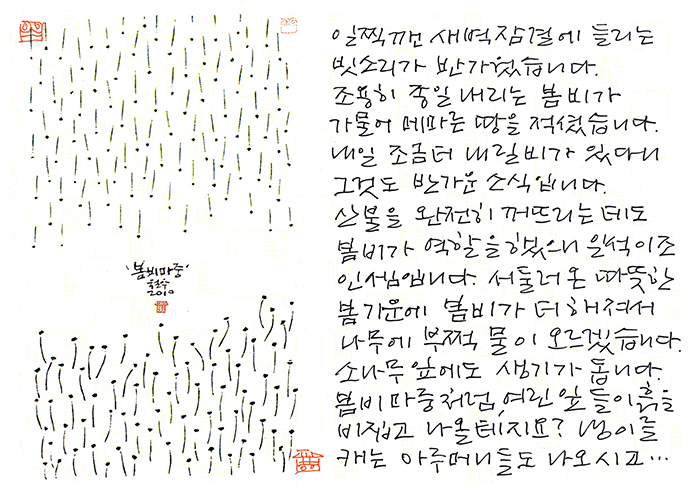 '봄비마중'
철수
2010
일찍깬 새벽잠결에 들리는
빗소리가 반가웠습니다.
조용히 종일 내리는 봄비가
가물어 메마른 땅을 적셨습니다.
내일 조금 더 내릴비가 있다니
그것도 반가운 소식입니다.
산불을 완전히 꺼뜨리는 데도
봄비가 역할을 했으니 일석이조
인셈입니다. 서둘러 온 따뜻한
봄기운에 봄비가 더해져서
나무에 부쩍 물이 오르겠습니다.
소나무 앞에도 생기가 돕니다.
봄비마중처럼, 여린 잎들이 흙을
비집고 나올테지요? 냉이를
캐는 아주머니들도 나오시고…